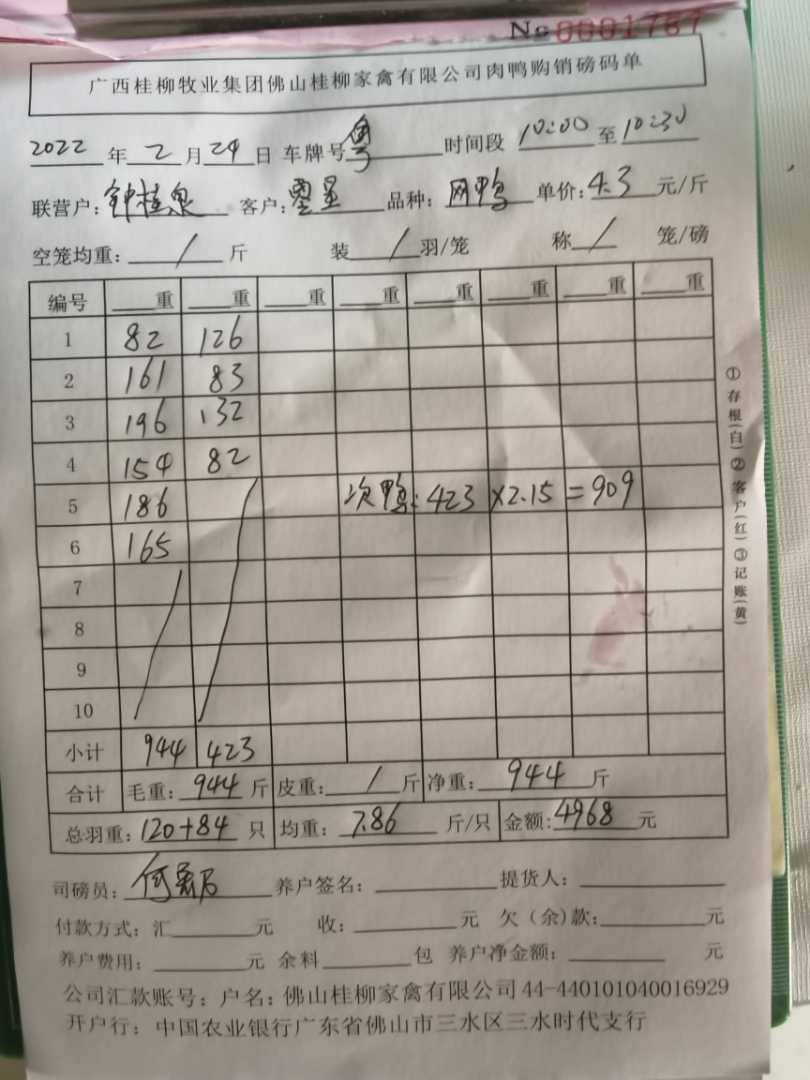 No 0001787
广西桂柳牧业集团佛山桂柳家禽有限公司肉鸭购销磅码单
2022年2月24日 车牌号粤 时间段 10:00至10:30
联营户：钟桂泉 客户：星 品种：网鸭 单价：4.3元/斤
空笼均重：/斤 装/羽/笼 称/笼/磅
编号 重 重 重 重 重 重 重 重
1 82 126
2 161 83
3 196 132
4 154 82
5 186 次鸭：423×2.15=909
6 165
7
8
9
10
小计 944 423
合计 毛重：944斤 皮重：/斤 净重：944斤
总羽重：120+84只 均重：7.86斤/只 金额：4968元
司磅员：何 养户签名： 提货人：
付款方式：汇 元 收： 元 欠（余）款： 元
养户费用： 元 余料 包 养户净金额： 元
公司汇款账号：户名：佛山桂柳家禽有限公司 44-440101040016929
开户行：中国农业银行广东省佛山市三水区三水时代支行
①存根（白）②客户（红）③记账（黄）